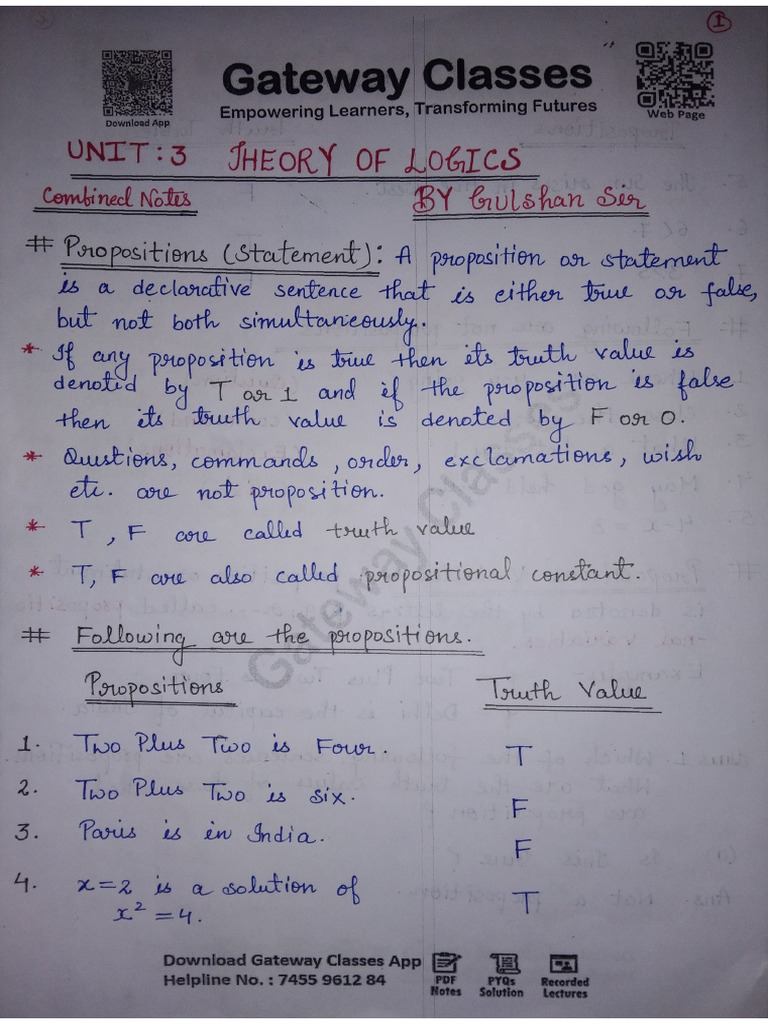 1
Gateway Classes
Empowering Learners, Transforming Futures
Download App
Web Page
UNIT : 3 THEORY OF LOGICS
Combined Notes BY Gulshan Sir
# Propositions (Statement): A proposition or statement
is a declarative sentence that is either true or false,
but not both simultaneously.
* If any proposition is true then its truth value is
denoted by T or 1 and if the proposition is false
then its truth value is denoted by F or 0.
* Questions, commands, order, exclamations, wish
etc. are not proposition.
* T, F are called truth value
* T, F are also called propositional constant.
Gateway Classes
# Following are the propositions.
Propositions Truth Value
1. Two Plus Two is Four. T
2. Two Plus Two is six. F
3. Paris is in India. F
4. x=2 is a solution of T
x² = 4.
Download Gateway Classes App
Helpline No. : 7455 9612 84
PDF Notes
PYQs Solution
Recorded Lectures